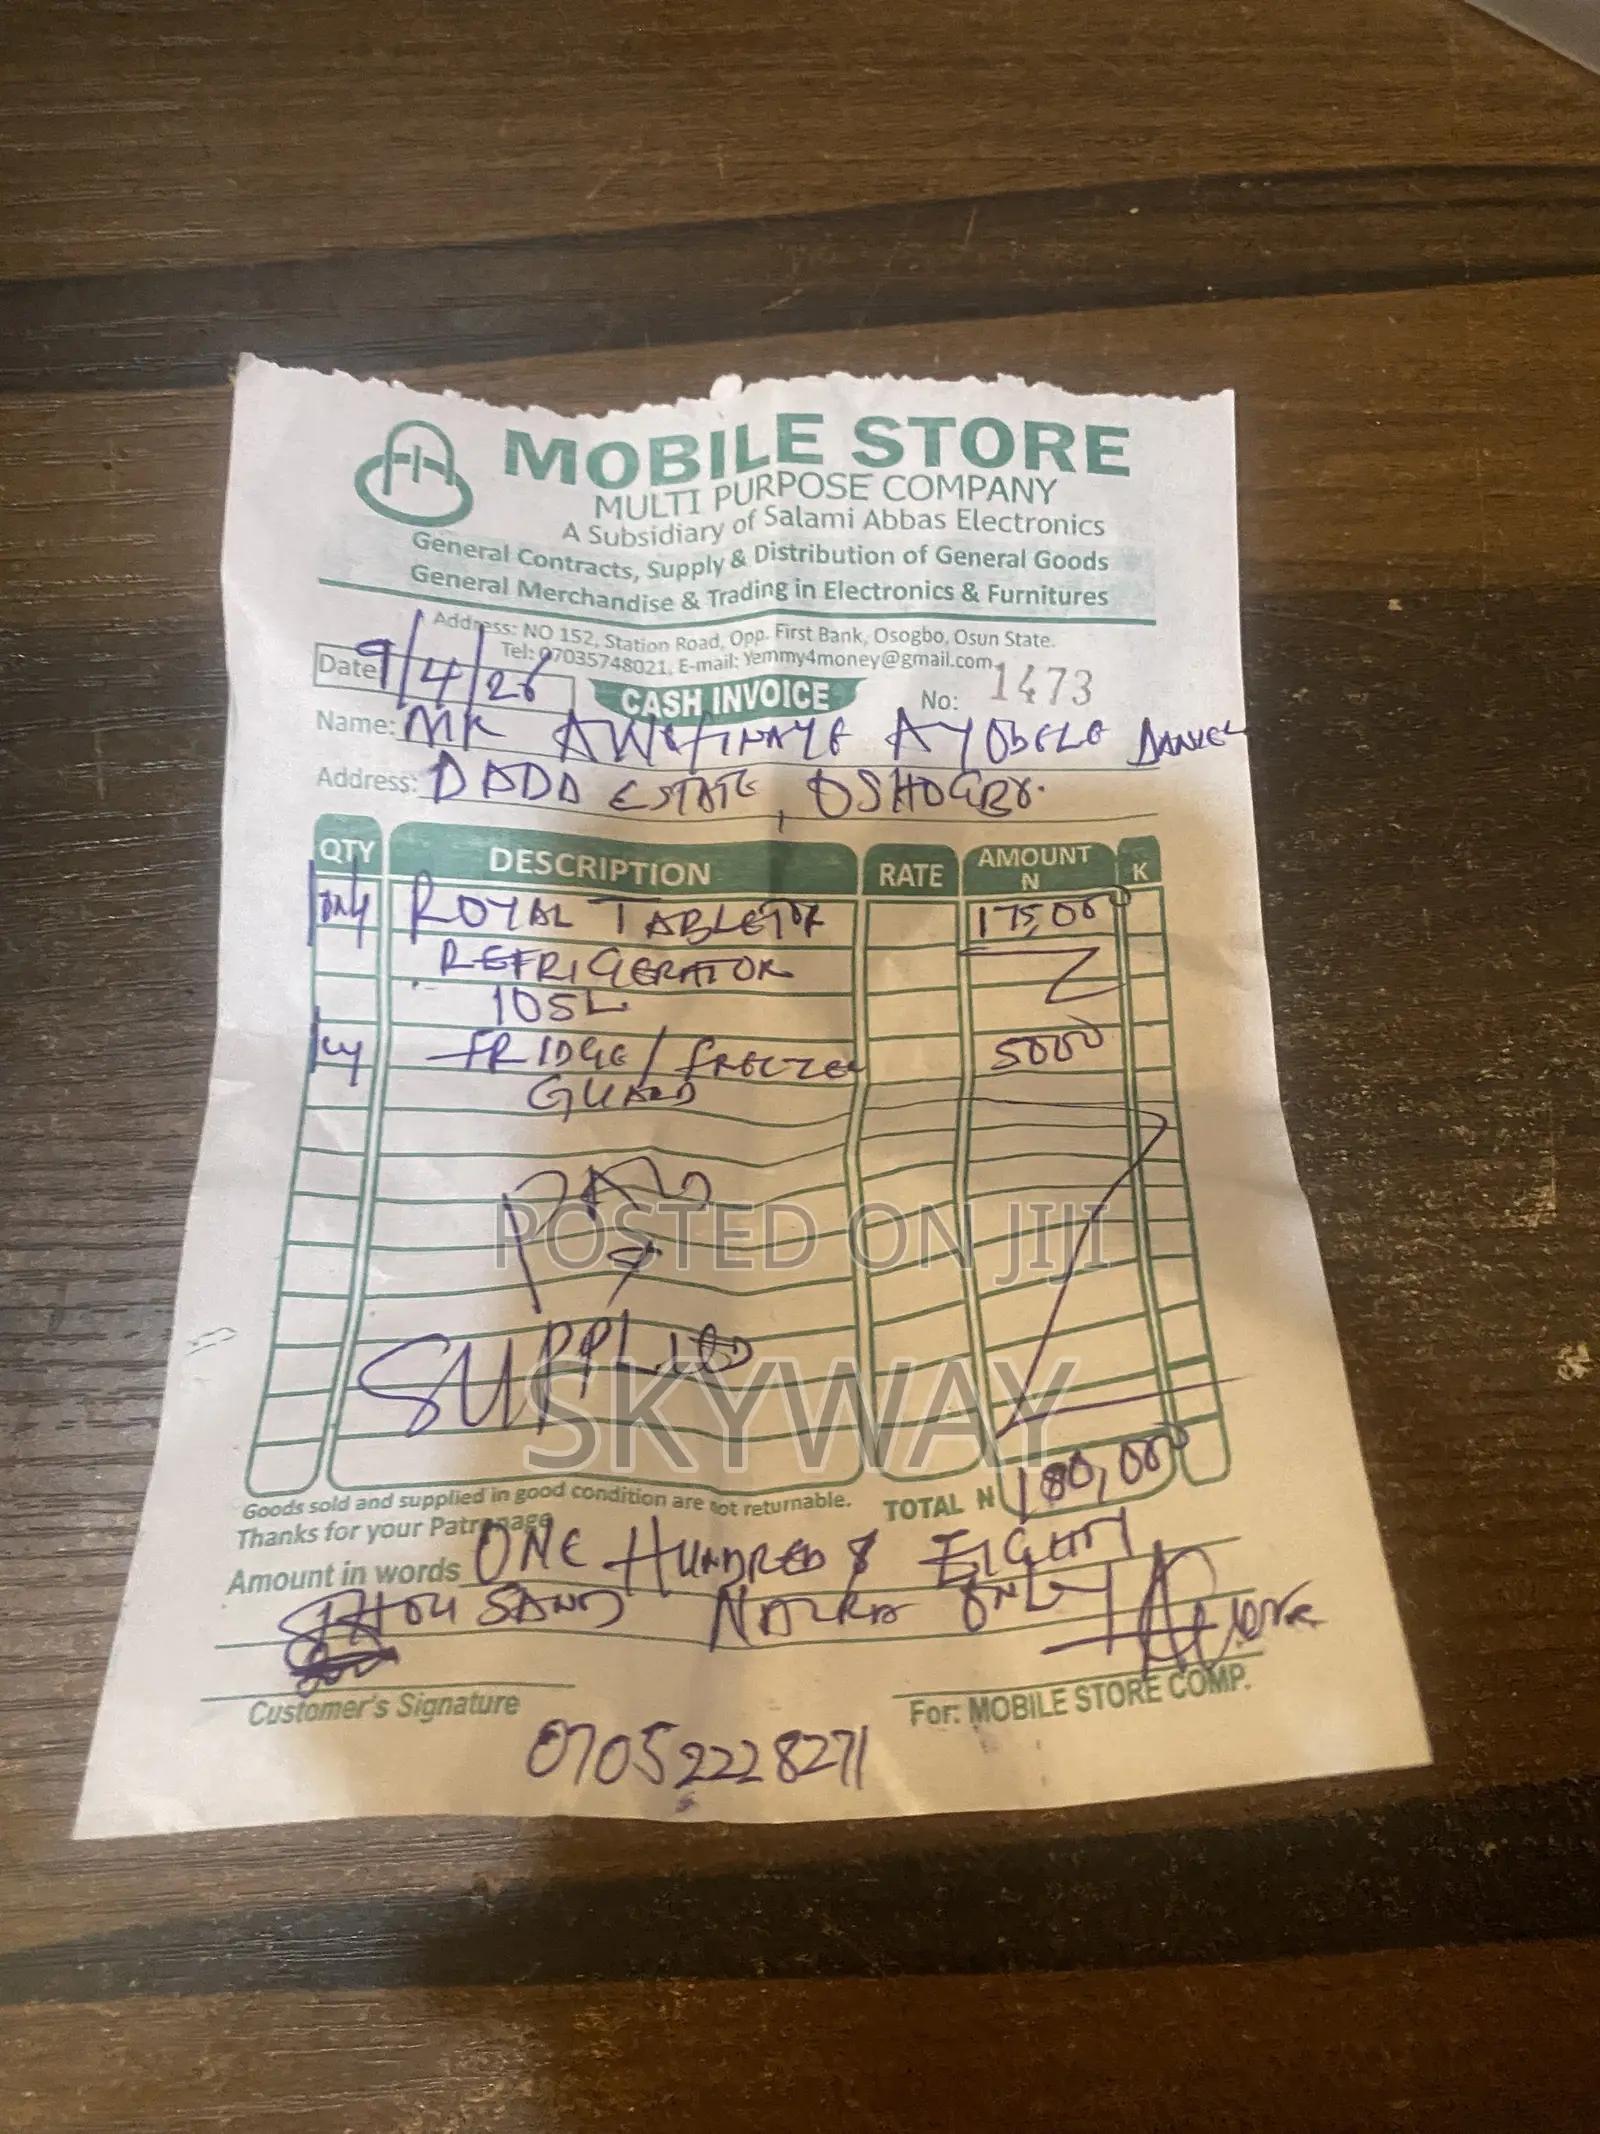 MOBILE STORE
MULTI PURPOSE COMPANY
A Subsidiary of Salami Abbas Electronics
General Contracts, Supply & Distribution of General Goods
General Merchandise & Trading in Electronics & Furnitures
Address: NO 152, Station Road, Opp. First Bank, Osogbo, Osun State.
Tel: 07035748021, E-mail: Yemmy4money@gmail.com
Date 9/4/26
CASH INVOICE No: 1473
Name: MR AWEFINAYE AYOBELE DANIEL
Address: DADA ESTATE, OSHOGBO.
QTY DESCRIPTION RATE AMOUNT N K
ROYAL TABLETOP 175,000
REFRIGERATOR
105L
FRIDGE/FREEZER 5000
GUARD
PAID
POSTED ON JIJI
SUPPLIED
SKYWAY
Goods sold and supplied in good condition are not returnable.
TOTAL N 180,000
Thanks for your Patronage
Amount in words ONE HUNDRED & EIGHTY
THOUSAND NAIRA ONLY
Customer's Signature
For: MOBILE STORE COMP.
07052228271